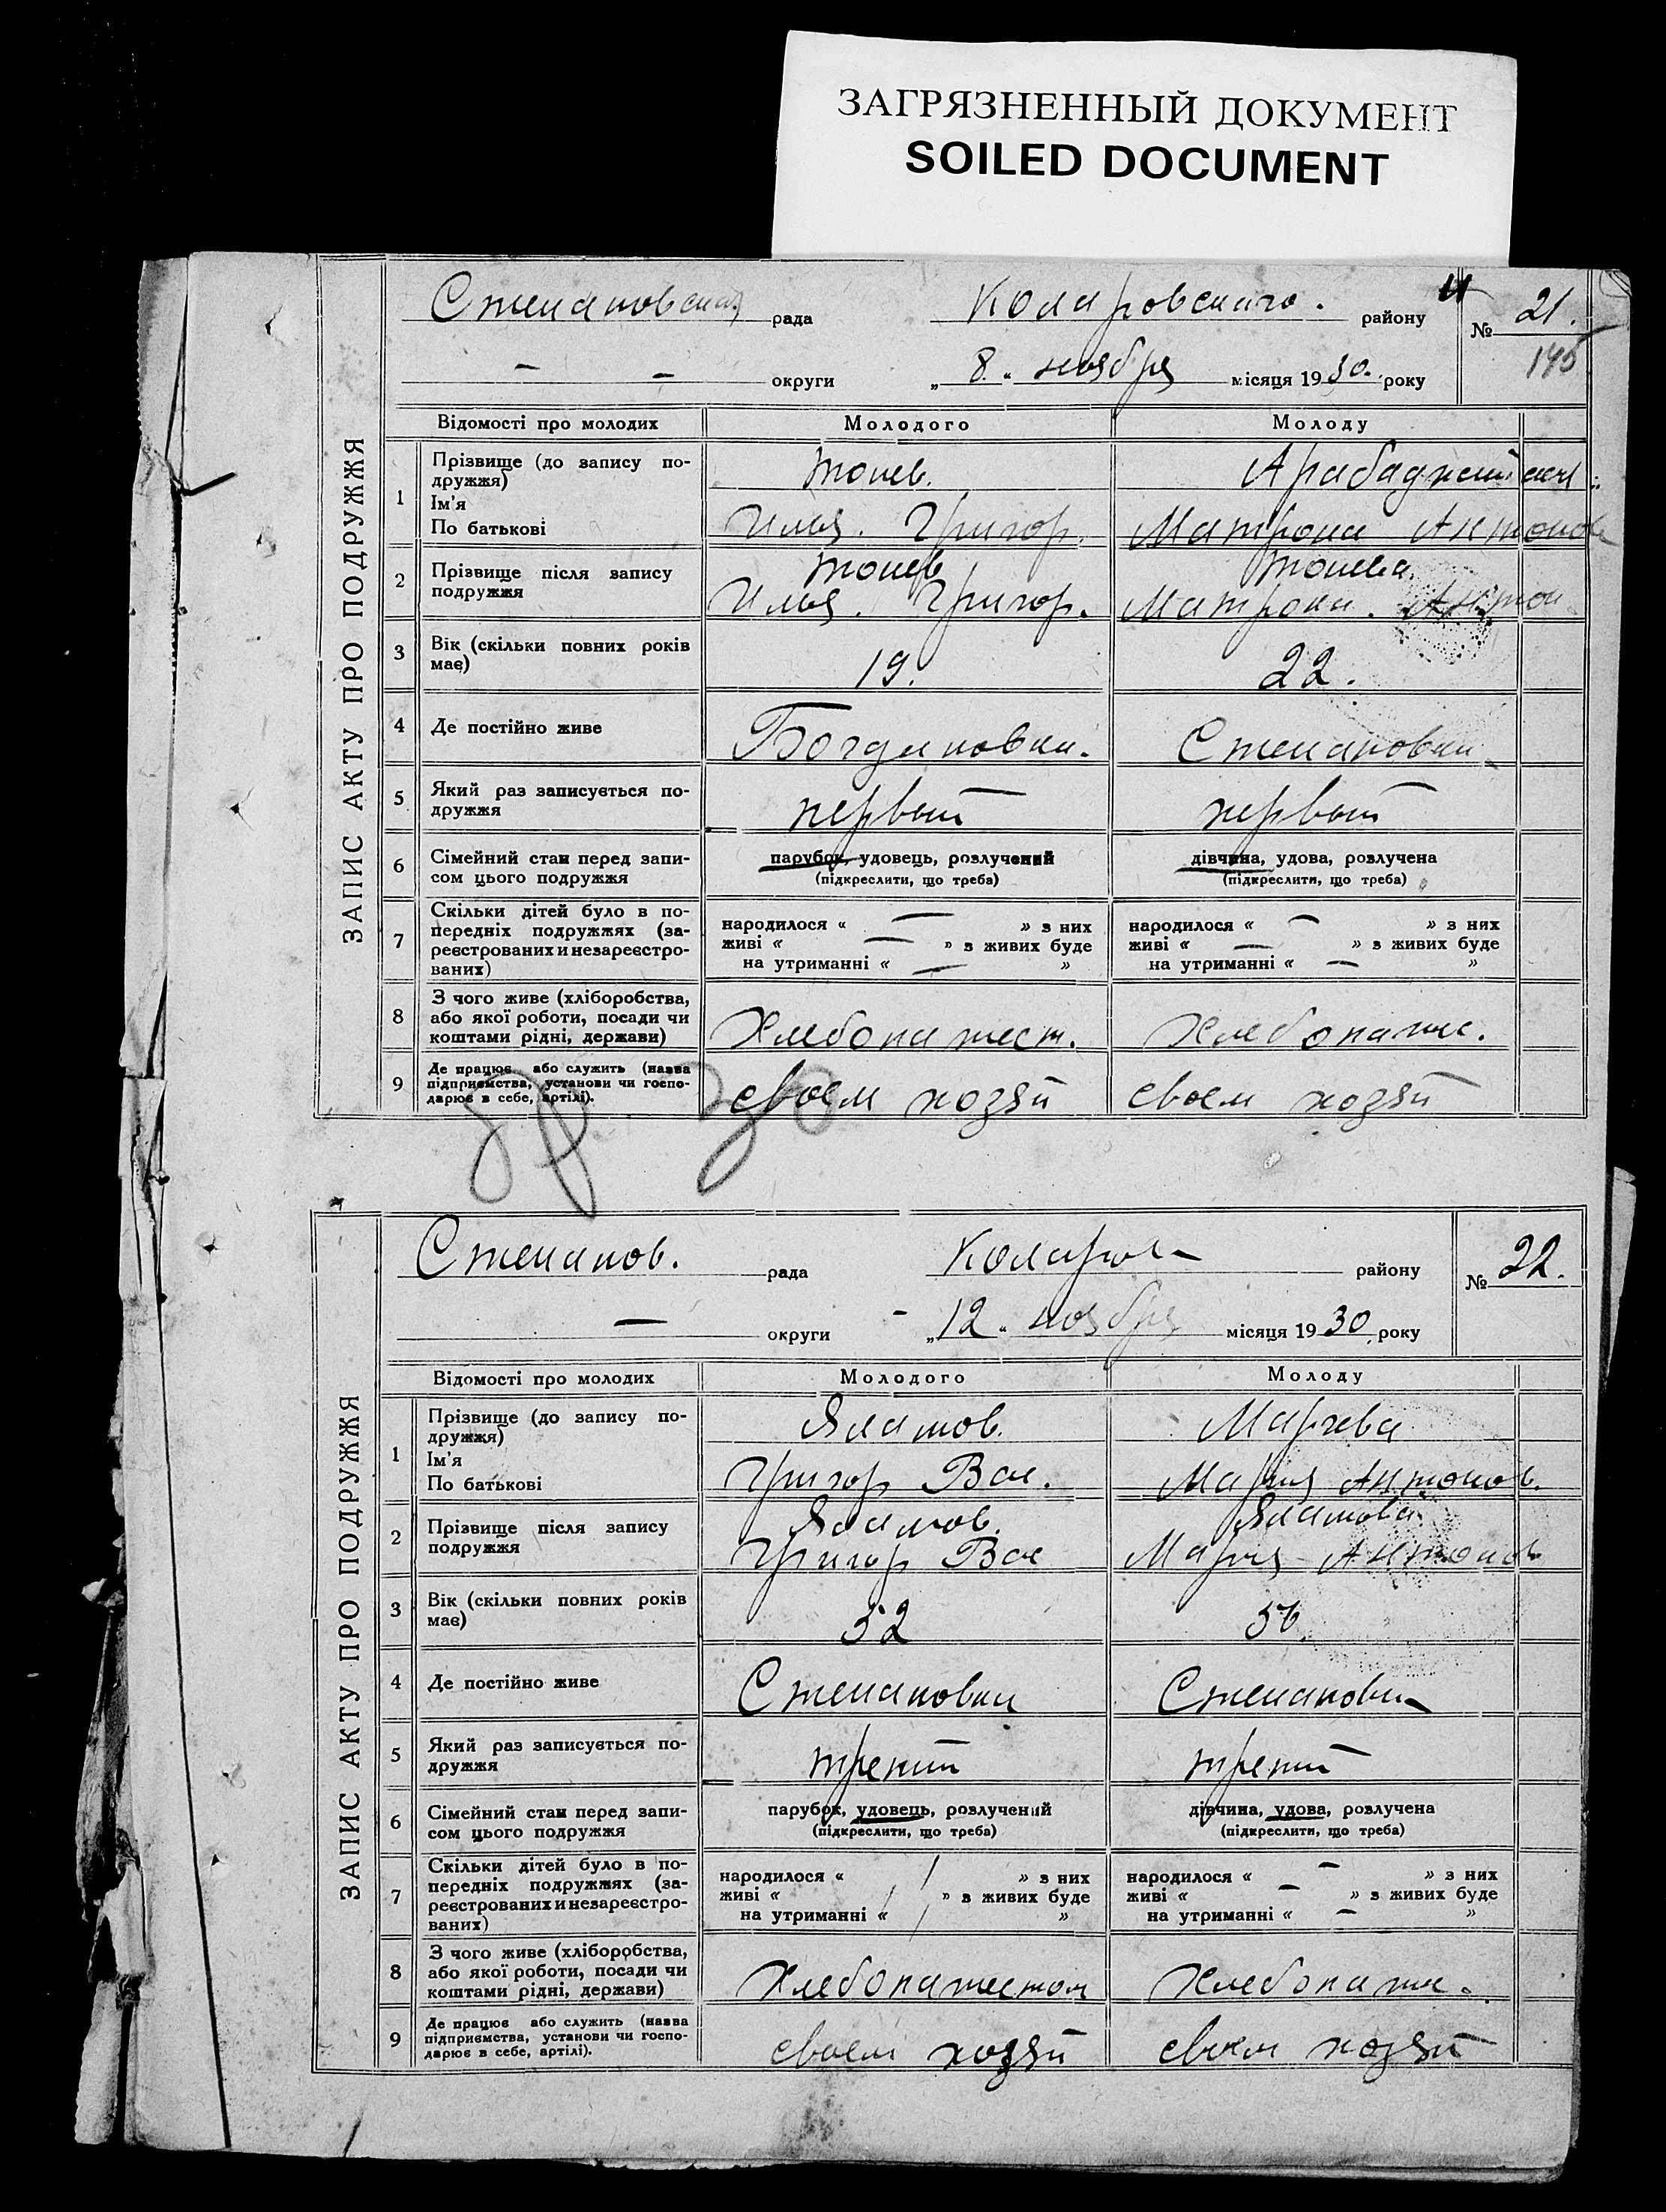 ЗАГРЯЗНЕННЫЙ ДОКУМЕНТ
SOILED DOCUMENT
ЗАПИС АКТУ ПРО ПОДРУЖЖЯ
Степановская рада Коларовского. району № 21.
145
— — округи „ 8. “ ноября місяця 19 30. року
Відомості про молодих Молодого Молоду
1 Прізвище (до запису по-
дружжя)
Ім'я
По батькові
Тонев.
Илья. Григор.
Матрона Антонов
2 Прізвище після запису
подружжя
Тонев
Илья. Григор.
Тонева.
Матрона. Антон
3 Вік (скільки повних років
має)
19. 22.
4 Де постійно живе Богдановка. Степановка
5 Який раз записується по-
дружжя
первый первый
6 Сімейний стан перед запи-
сом цього подружжя
парубок, удовець, розлучений
(підкреслити, що треба)
дівчина, удова, розлучена
(підкреслити, що треба)
7 Скільки дітей було в по-
передніх подружжях (за-
реєстрованих и незареєстро-
ваних)
народилося « — » з них
живі « — » з живих буде
на утриманні « — »
народилося « — » з них
живі « — » з живих буде
на утриманні « — »
8 З чого живе (хліборобства,
або якої роботи, посади чи
коштами рідні, держави)
Хлебопашест. Хлебопаше.
9 Де працює або служить (назва
підприємства, установи чи госпо-
дарює в себе, артілі).
своем хозяй своем хозяй
ЗАПИС АКТУ ПРО ПОДРУЖЖЯ
Степанов. рада Коларов району № 22.
— округи „ 12 “ ноября місяця 19 30 року
Відомості про молодих Молодого Молоду
1 Прізвище (до запису по-
дружжя)
Ім'я
По батькові
Ялатов.
Григор Вас.
Марчева
Мария Антонов.
2 Прізвище після запису
подружжя
Ялатов.
Григор Вас
Ялатова
Мария Антонов
3 Вік (скільки повних років
має)
52
4 Де постійно живе Степановка Степановка
5 Який раз записується по-
дружжя
третий третий
6 Сімейний стан перед запи-
сом цього подружжя
парубок, удовець, розлучений
(підкреслити, що треба)
дівчина, удова, розлучена
(підкреслити, що треба)
7 Скільки дітей було в по-
передніх подружжях (за-
реєстрованих и незареєстро-
ваних)
народилося « / » з них
живі « / » з живих буде
на утриманні « / »
народилося « — » з них
живі « — » з живих буде
на утриманні « — »
8 З чого живе (хліборобства,
або якої роботи, посади чи
коштами рідні, держави)
Хлебопашеством Хлебопаше.
9 Де працює або служить (назва
підприємства, установи чи госпо-
дарює в себе, артілі).
своем хозяй своем хозяй